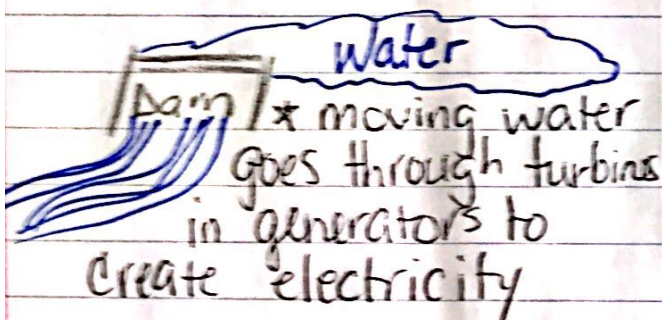 Water
Dam * moving water
goes through turbins
in generators to
create electricity